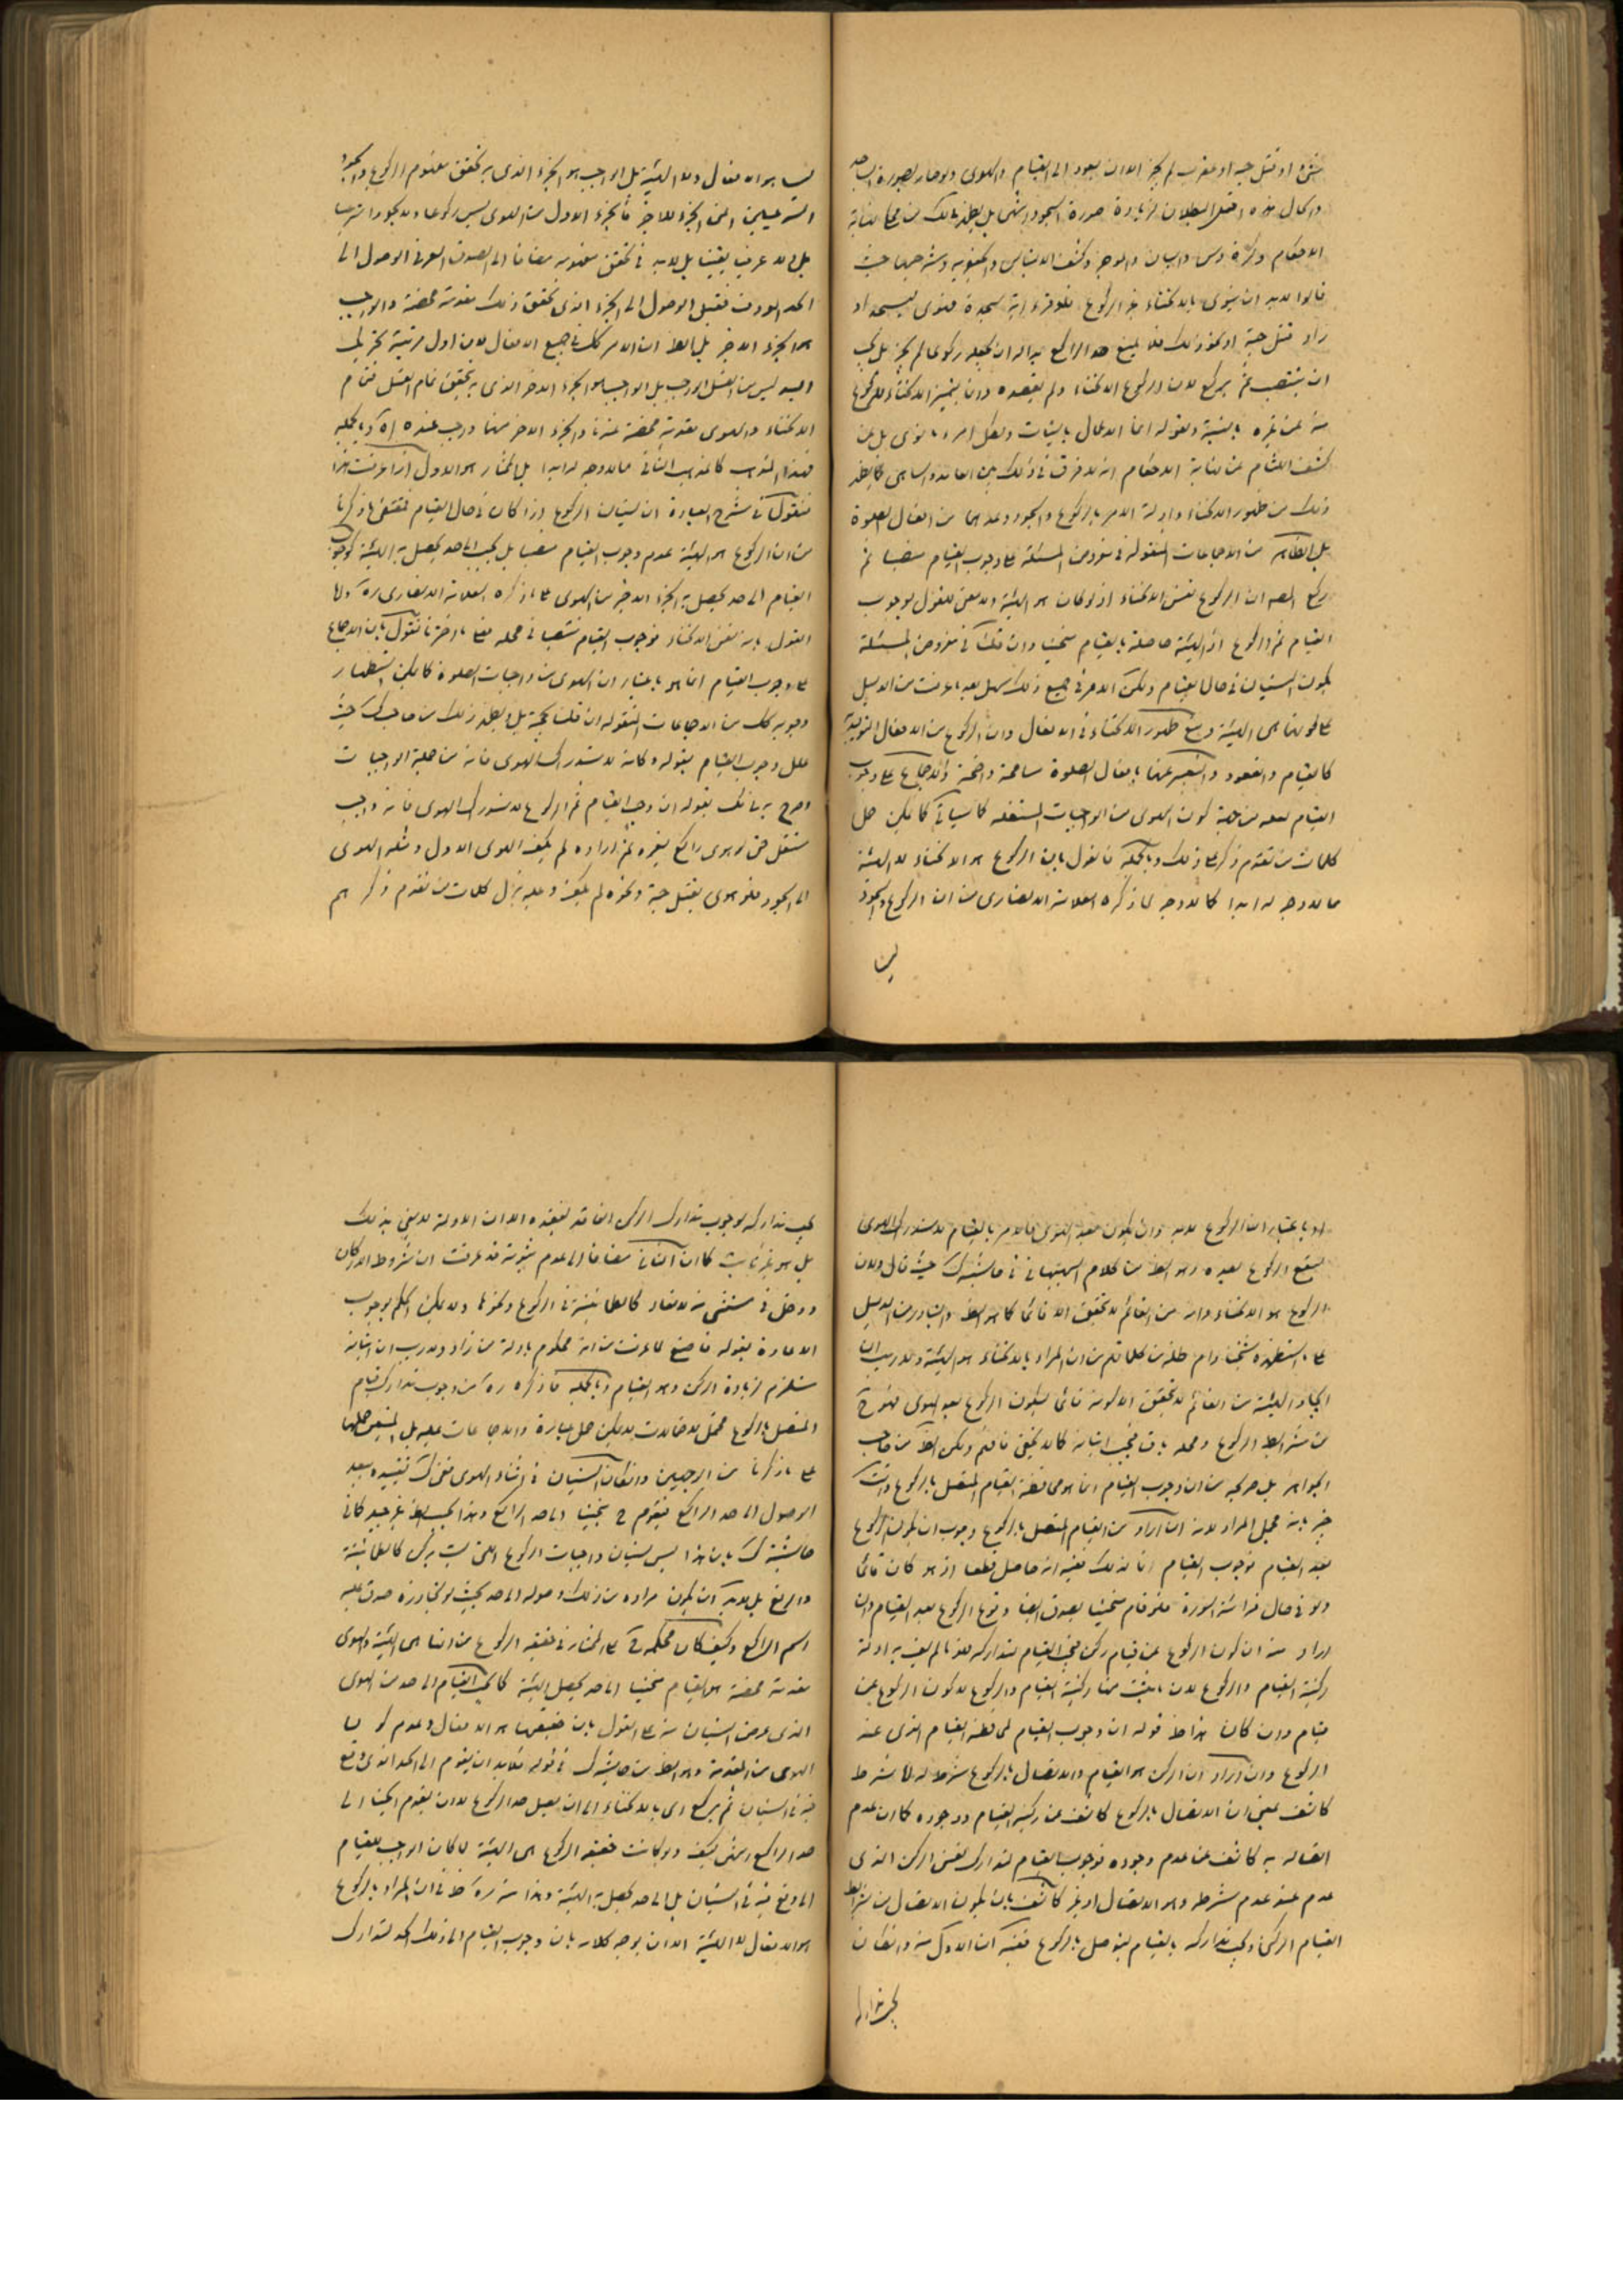 او قتل حية او عقرب لم يجز الا ان يعود الى القيام والهوى ولو صار بصورة الساجد
واكمال هذه قيل البطلان لزيادة صورة السجود
الاحكام والبيان والموجز وكشف الالتباس والجعفرية وشرحيها حيث
قالوا لابد ان ينوى بالانحناء غير الركوع فلو قرء اية سجدة فهوى ليسجد او
اراد قتل حية او نحو ذلك فلما بلغ حد الراكع بدا له ان يجعله ركوعا لم يجز بل يجب
ان ينتصب ثم يركع لان الركوع الانحناء ولم يقصده وانما يتميز الانحناء للركوع
منه عن غيره بالنية ولقوله انما الاعمال بالنيات ولكل امرء ما نوى بل عن
كشف اللثام عن نهاية الاحكام انه لا فرق في ذلك بين العامد والساهى كما يظهر
ذلك من ظهور الانحناء وادلة الامر بالركوع والسجود وعدهما من افعال الصلوة
بل الظاهر من الاجماعات المنقولة في مفروض المسئلة على وجوب القيام منتصبا ثم
يركع ان الركوع نفس الانحناء اذ لو كان هو الهيئة ولا معنى للقول بوجوب
القيام ثم الركوع اذ الهيئة حاصلة بالقيام منحنيا وان قلت في مفروض المسئلة
لكون النسيان في حال القيام ولكن الامر في جميع ذلك سهل بعد ما عرفت من الدليل
على كونها هى الهيئة ومنع ظهور الانحناء في الافعال وان الركوع من الافعال التوليدية
كالقيام والقعود والتعبير عنها بافعال الصلوة مسامحة واضحة والاجماع على وجوب
القيام لعله من جهة كون الهوى من الواجبات المستقلة كما سياتي كما يمكن حمل
كلمات من تقدم ذكره على ذلك وبالجملة فالقول بان الركوع هو الانحناء لا الهيئة
مما لا وجه له ابدا كما لا وجه لما ذكره العلامة الانصارى من ان الركوع والسجود
ليسا
ليسا هو الافعال ولا الهيئة بل الواجب هو الجزء الذى به تحقق مفهوم الركوع والسجود
الشرعيين اعنى الجزء الاخر فالجزء الاول من الهوى ليس ركوعا ولا سجودا شرعيا
بل ولا عرفيا يقينا بل لابد في تحقق مفهومه مضافا الى الصدق العرفى الوصول الى
الحد المعروف فقبل الوصول الى الجزء الذى تحقق ذلك مقدمة محضة والواجب
هو الجزء الاخر بل الظ ان الامر كك في جميع الافعال لان اول مرتبة تحريك
اليد ليس من الغسل الواجب بل الواجب هو الجزء الاخر الذى به يتحقق تمام الغسل فتمام
الانحناء والهوى مقدمة محضة عندنا والجزء الاخر منهما واجب عنده اه وبالجملة
فهذا المذهب كالمذهب الثانى مما لا وجه له ابدا بل المختار هو الاول اذا عرفت هذا
فنقول في شرح العبارة ان نسيان الركوع اذا كان في حال القيام فمقتضى ما ذكرنا
من ان الركوع هو الهيئة عدم وجوب القيام منتصبا بل يجب الى حد يحصل به الهيئة كوجوب
القيام الى حد يحصل به الجزء الاخر من الهوى على ما ذكره العلامة الانصارى ره واما
القول بانه نفس الانحناء فوجوب القيام منتصبا في محله على ما اخترنا نقول بان الاجماع
على وجوب القيام انما هو باعتبار ان الهوى من واجبات الصلوة كما يمكن استظهار
وجوبه كك من الاجماعات المنقولة ان قلت بحجيته بل يظهر ذلك من صاحب ك حيث
علل وجوب القيام بقوله وكانه لاستدراك الهوى فانه من جملة الواجبات
وصرح به في لك بقوله ان وجب القيام ثم الركوع لاستدراك الهوى فانه واجب
مستقل حتى لو هوى راكع لغيره ثم اراده لم يكف الهوى الاول ومثله الهوى
الى السجود فلو هوى لقتل حية ونحوه لم يكف وعليه ينزل كلمات من تقدم ذكرهم
او باعتبار ان الركوع لابد وان يكون عقيب الهوى فالامر بالقيام لاستدراك الهوى
ليقع الركوع بعده وهو الظ من كلام البهبهانى في حاشية ك حيث قال ولان
الركوع هو الانحناء وانه من القائم لا يتحقق الا قائما كما هو الظ والتبادر من الدليل
على ما استظهره شيخنا دام ظله من كلماتهم من ان المراد بالانحناء هو الهيئة ولا ريب ان
ايجاد الهيئة من القائم لا يتحقق الا لو منه قائما ليكون الركوع بعد الهوى فهو ح
من شرائط الركوع ومحله باق فيجب اتيانه كما لا يخفى فافهم ولكن الظ من صاحب
الجواهر بل صريحه من ان وجوب القيام انما هو لمحافظة القيام المتصل بالركوع وانت
خبير بانه مجمل المراد لانه ان اراد من القيام المتصل بالركوع وجوب ان يكون الركوع
بعد القيام فوجوب القيام انما لذلك ففيه انه حاصل قطعا اذ هو كان قائما
ولو في حال قرائة السورة فلو قام منحنيا يصدق ايضا وقوع الركوع بعد القيام وان
اراد منه ان كون الركوع عن قيام ركن فيجب القيام لتداركه فلانا لم يف به ادلة
ركنية القيام والركوع لان ما يثبت منها ركنية القيام والركوع لا كون الركوع عن
قيام وان كان هذا ظ قوله ان وجوب القيام لمحافظة القيام الذى عنه
الركوع وان اراد ان الركن هو القيام والاتصال بالركوع شرط له اما شرط
كاشف بمعنى ان الاتصال بالركوع كاشف عن ركنية القيام ووجوده كما ان عدم
اتصاله به كاشف عن عدم وجوده فوجوب القيام لتدارك نفس الركن الذى
عدم عند عدم شرطه وهو الاتصال او غير كاشف بان يكون الاتصال من شرائط
القيام الركنى ويجب تداركه بالقيام ليتوصل بالركوع ففيه ان الاول منه وان كان
يجب تداركه
يجب تداركه لوجوب تدارك الركن اذا قد يفقده الا ان الادلة لا يفى بذلك
بل هو غير ثابت كما ان الثانى مضافا الى عدم ثبوته قد عرفت ان شروط الاركان
ودخل في مستثنى منه لا تعاد كالطمانينة في الركوع ونحوها ولا يمكن الحكم بوجوب
الاعادة بقوله فاصنع لما عرفت من انه محكوم بادلة من زاد ولا ريب ان اتيانه
مستلزم لزيادة الركن وهو القيام وبالجملة ما ذكره ره من وجوب تدارك قيام
المتصل بالركوع محتمل لاحتمالات لا يمكن حمل عبارة والاجماعات عليه بل المتيقن حملها
على ما ذكرنا من الوجهين وان كان النسيان في اثناء الهوى فعن ك تقييده ببعد
الوصول الى حد الراكع فيقوم ح منحنيا الى حد الراكع وهذا بحسب الظ غير جيد كما في
حاشية ك بان هذا ليس نسيان واجبات الركوع اللتى ليست بركن كالطمانينة
والرفع بل لابد ان يكون مراده من ذلك وصوله الى حد بحيث لو تجاوزه صدق عليه
اسم الراكع وكيف كان فحكمه ح على المختار في حقيقة الركوع من انها هى الهيئة والهوى
مقدمة محضة هو القيام منحنيا الى حد يحصل الهيئة كما يجب القيام الى حد من الهوى
الذى عرض النسيان منه على القول بان حقيقتها هو الافعال وعدم كون
الهوى من المقدمة وهو الظ من حاشية ك في قوله فلابد ان يقوم الى الحد الذى وقع
فيه في النسيان ثم يركع اى بالانحناء الى ان يصل حد الركوع لا ان يقوم منحنيا الى
حد الراكع ويكفى ولو كانت حقيقة الركوع هى الهيئة لما كان الواجب القيام
الى ما وقع فيه في النسيان بل الى حد يحصل به الهيئة وهذا منه ره ظ في ان المراد بالركوع
هو الافعال لا الهيئة الا ان يوجه كلامه بان وجوب القيام الى ذلك الحد لتدارك